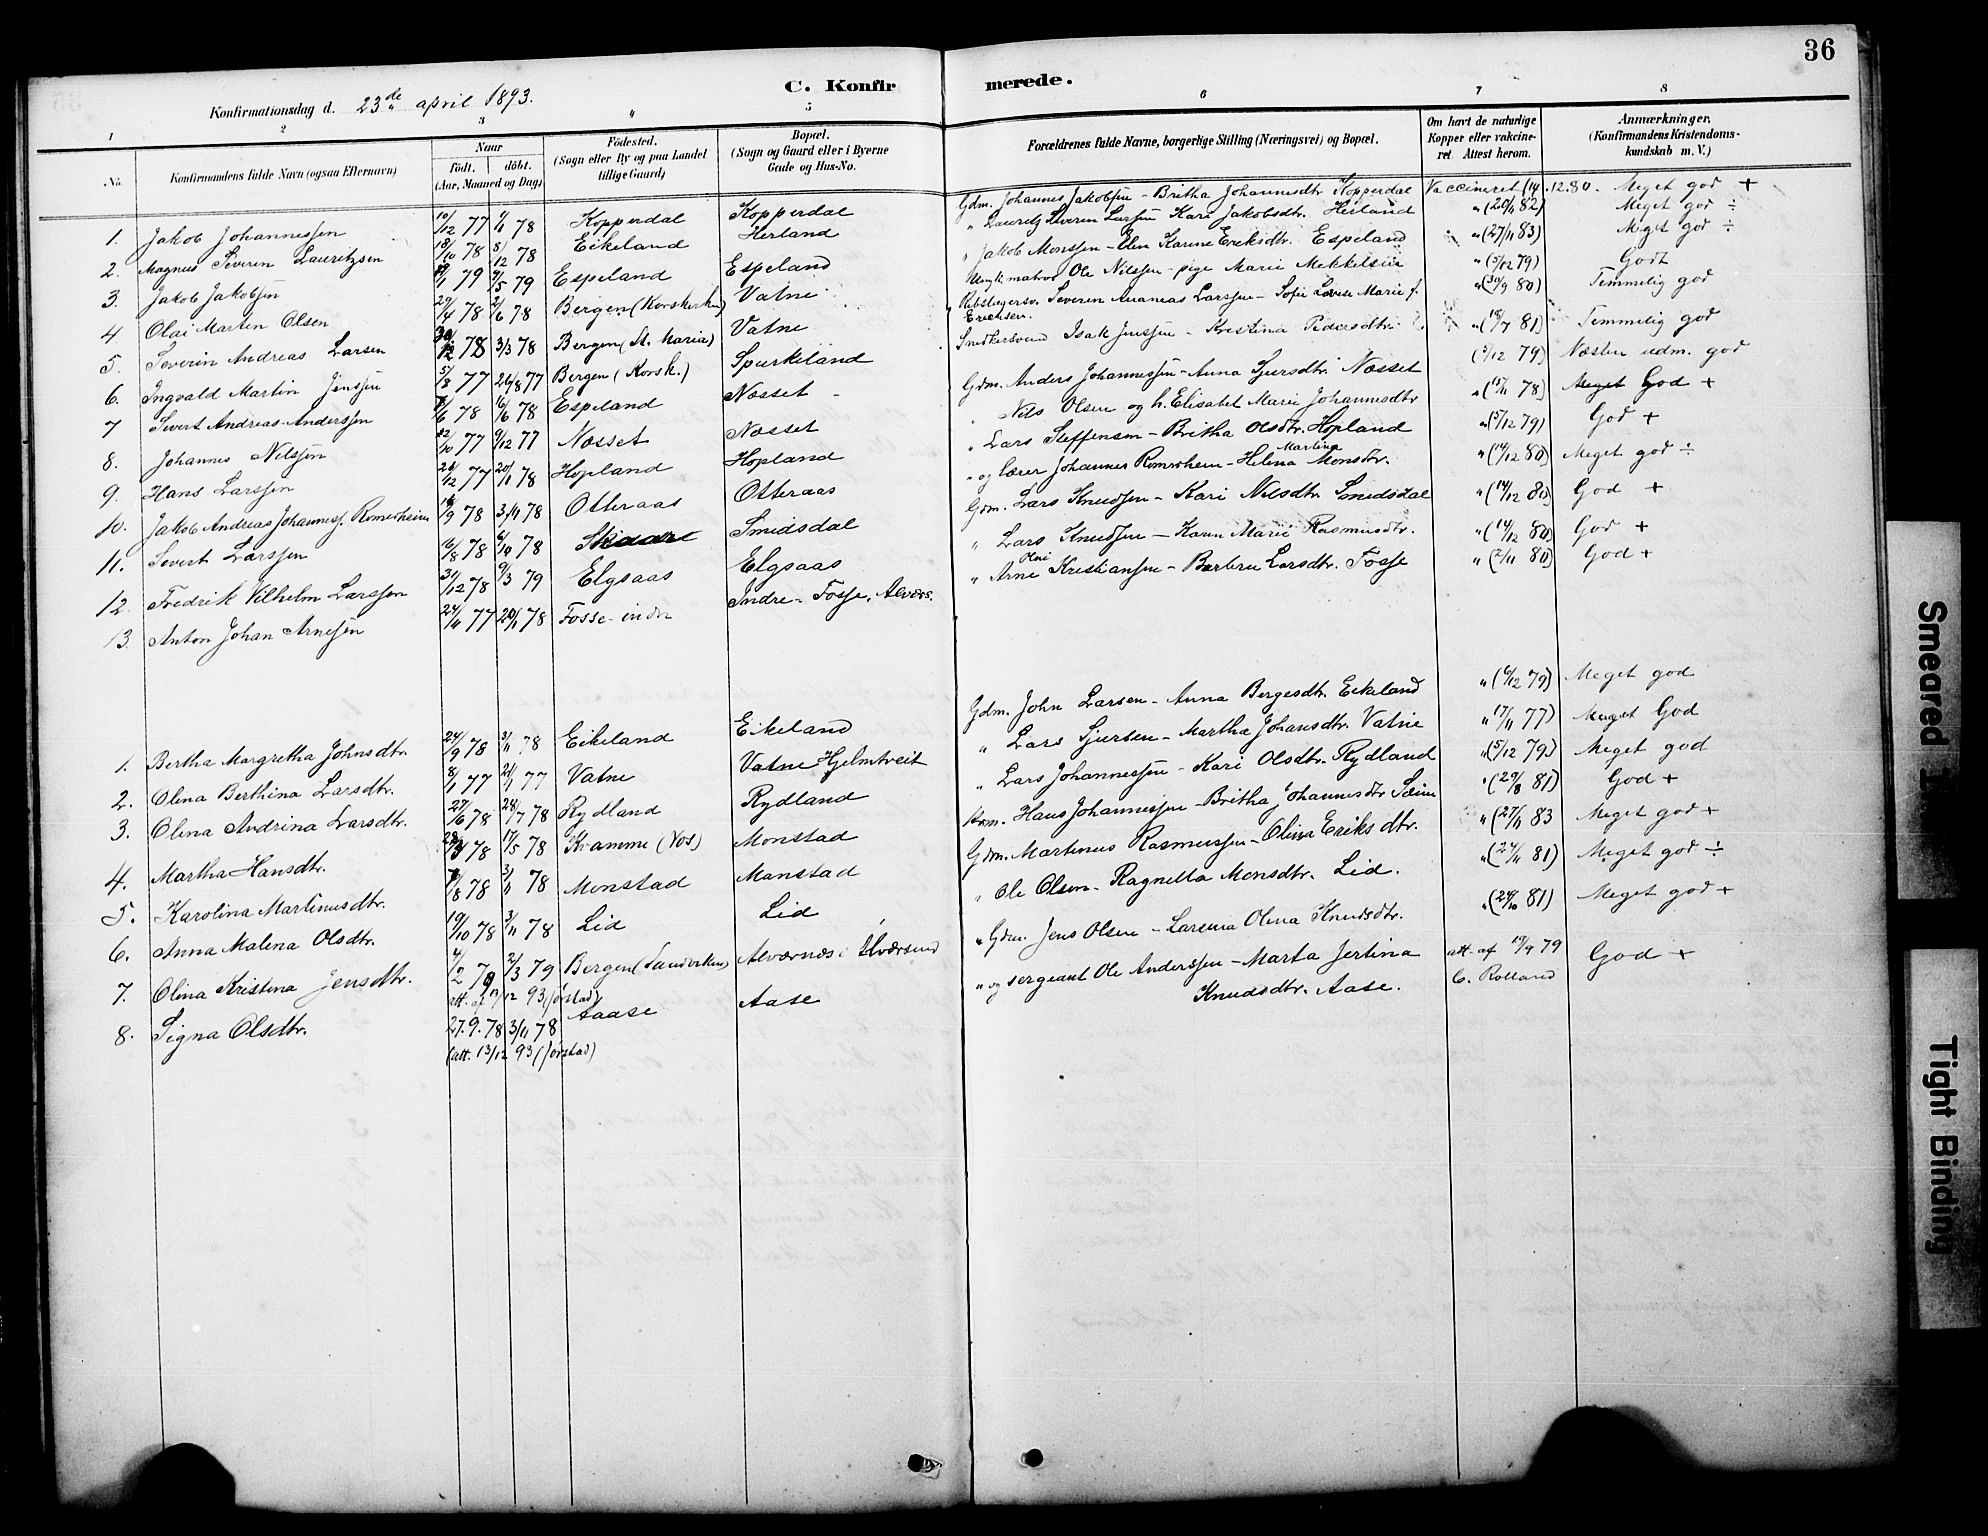 36
C. Konfirmerede.
Konfirmationsdag d. 23de april 1893.
1 2 3 4 5 6 7 8
No. Konfirmandens fulde Navn (ogsaa Efternavn) Naar Födt. döbt. (Aar, Maaned og Dag) Födested. (Sogn eller By og paa Landet tillige Gaard) Bopæl. (Sogn og Gaard eller i Byerne Gade og Hus-No. Forældrenes fulde Navne, borgerlige Stilling (Næringsvei) og Bopæl. Om havt de naturlige Kopper eller vakcineret. Attest herom. Anmærkninger. (Konfirmandens Kristendomskundskab m. V.)
1. Jakob Johannessen 10/12 77 1/1 78 Kopperdal Kopperdal Gdm. Johannes Jakobsen - Britha Johannesdtr. Kopperdal Vaccineret (14.12.80. Meget god +
2. Magnus Severin Lauritzsen 18/10 78 8/12 78 Eikeland Herland " Lauritz Severin Larsen Kari Jakobsdtr. Herland " (20/11 82) Meget god ÷
3. Jakob Jakobsen 79 79 Espeland Espeland " Jakob Monssen - Elen Karine Eriksdtr. Espeland " (27/11 83) Meget god ÷
4 Olai Martin Olsen 29/4 78 2/6 78 Bergen (Korskirken) Vatne Ole Nilssen - pige Marie Mekkelsen " (5/12 79) Godt
5. Severin Andreas Larsen 78 3/3 78 Bergen (St. Maria) Vatne Severin Andreas Larssen - Sofie Lovise Marie f. Erichsen. " (30/9 80) Temmelig god
6. Ingvald Martin Jenssen 5/8 77 26/8 77 Bergen (Korsk.) Spurkeland Snedkersvend Isak Jenssen - Kristina Pedersdtr. " (18/7 81) Temmelig god
7 Sivert Andreas Anderssen 78 16/6 78 Espeland Nosset Gdm. Anders Johannessen - Anna Sjursdtr. Nosset (5/12 79) Næsten udm. god
8. Johannes Nilssen 22/10 77 9/12 77 Nosset Nosset " Nils Olsen og h. Elisabet Marie Johannesdtr " 78) Meget God +
9. Hans Larssen 26/12 77 20/1 78 Hopland Hopland " Lars Steffensen - Britha Olsdtr. Hopland " (5/12 79) God +
10. Jakob Andreas Johanness. Romarheim 16/9 78 3/11 78 Otteraas Otteraas " og lærer Johannes Romarheim - Helena Martina Monsdtr. " (14/12 80) Meget god ÷
11. Sivert Larssen 16/8 78 6/10 78 Skaare Smidsdal Gdm. Lars Knudsen - Kari Nilsdtr. Smidsdal " (14/12 80) God +
12. Fredrik Vilhelm Larssen 31/12 78 9/3 79 Elgsaas Elgsaas " Lars Knudsen - Karen Marie Rasmusdtr. " (14/12 80) God +
13. Anton Johan Arnesen 24/11 77 20/1 78 Fosse indre Indre-Fosse, Alvers. " Arne Olai Kristiansen - Barbru Larsdtr. Fosse " (2/11 80) God +
1. Bertha Margretha Johnsdtr. 24/9 78 3/11 78 Eikeland Eikeland Gdm. John Larsen - Anna Bergesdtr. Eikeland " (6/12 79) Meget god
2. Olena Berthina Larsdtr. 8/1 77 21/1 77 Vatne Vatne Hjelmtveit " Lars Sjursen - Martha Johansdtr. Vatne " 17/11 77) Meget God
3. Olina Andrina Larsdtr. 27/6 78 28/7 78 Rydland Rydland " Lars Johannessen - Kari Olsdtr. Rydland " (5/12 79) Meget god
4. Martha Hansdtr. 78 17/5 78 Kvamme (Vos) Monstad Hans Johannessen - Britha Johannesdtr Sæim " (29/8 81) God +
5. Karolina Martinusdtr. 78 3/11 78 Monstad Manstad Gdm. Martinus Rasmussen - Olina Eriksdtr. " (27/11 83 Meget god +
6. Anna Malena Olsdtr. 19/10 78 3/11 78 Lid Lid " Ole Olsen - Ragnilla Monsdtr. Lid. " (24/11 81) Meget god ÷
7. Olina Kristina Jensdtr. 4/2 79 2/3 79 Bergen (Sandviken) Alvernæs i Alversund " Gdm. Jens Olsen - Larsina Olina Knudsdtr. " (24/10 81) Meget god +
att. af 12/12 93 (Jørstad)
8. Signa Olsdtr. 27.9.78 3/11 78 Aaase Aase " og sergeant Ole Anderssen - Marta Jertina Knudsdtr. Aase. att. af 19/9 79 C. Rolland God +
(att. 13/12 93 (Jørstad)
Smeared
Tight Binding